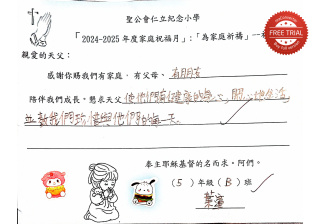 聖公會仁立紀念小學
「2024-2025年度家庭祝福月」:「為家庭祈禱」
FREE TRIAL
親愛的天父:
感謝你賜我們有家庭,有父母、有朋友
陪伴我們成長。懇求天父使他們有健康的身心,開心地生活,
並教我們珍惜與他們的每一天。
奉主耶穌基督的名而求。阿們。
(5)年級(B)班
葉